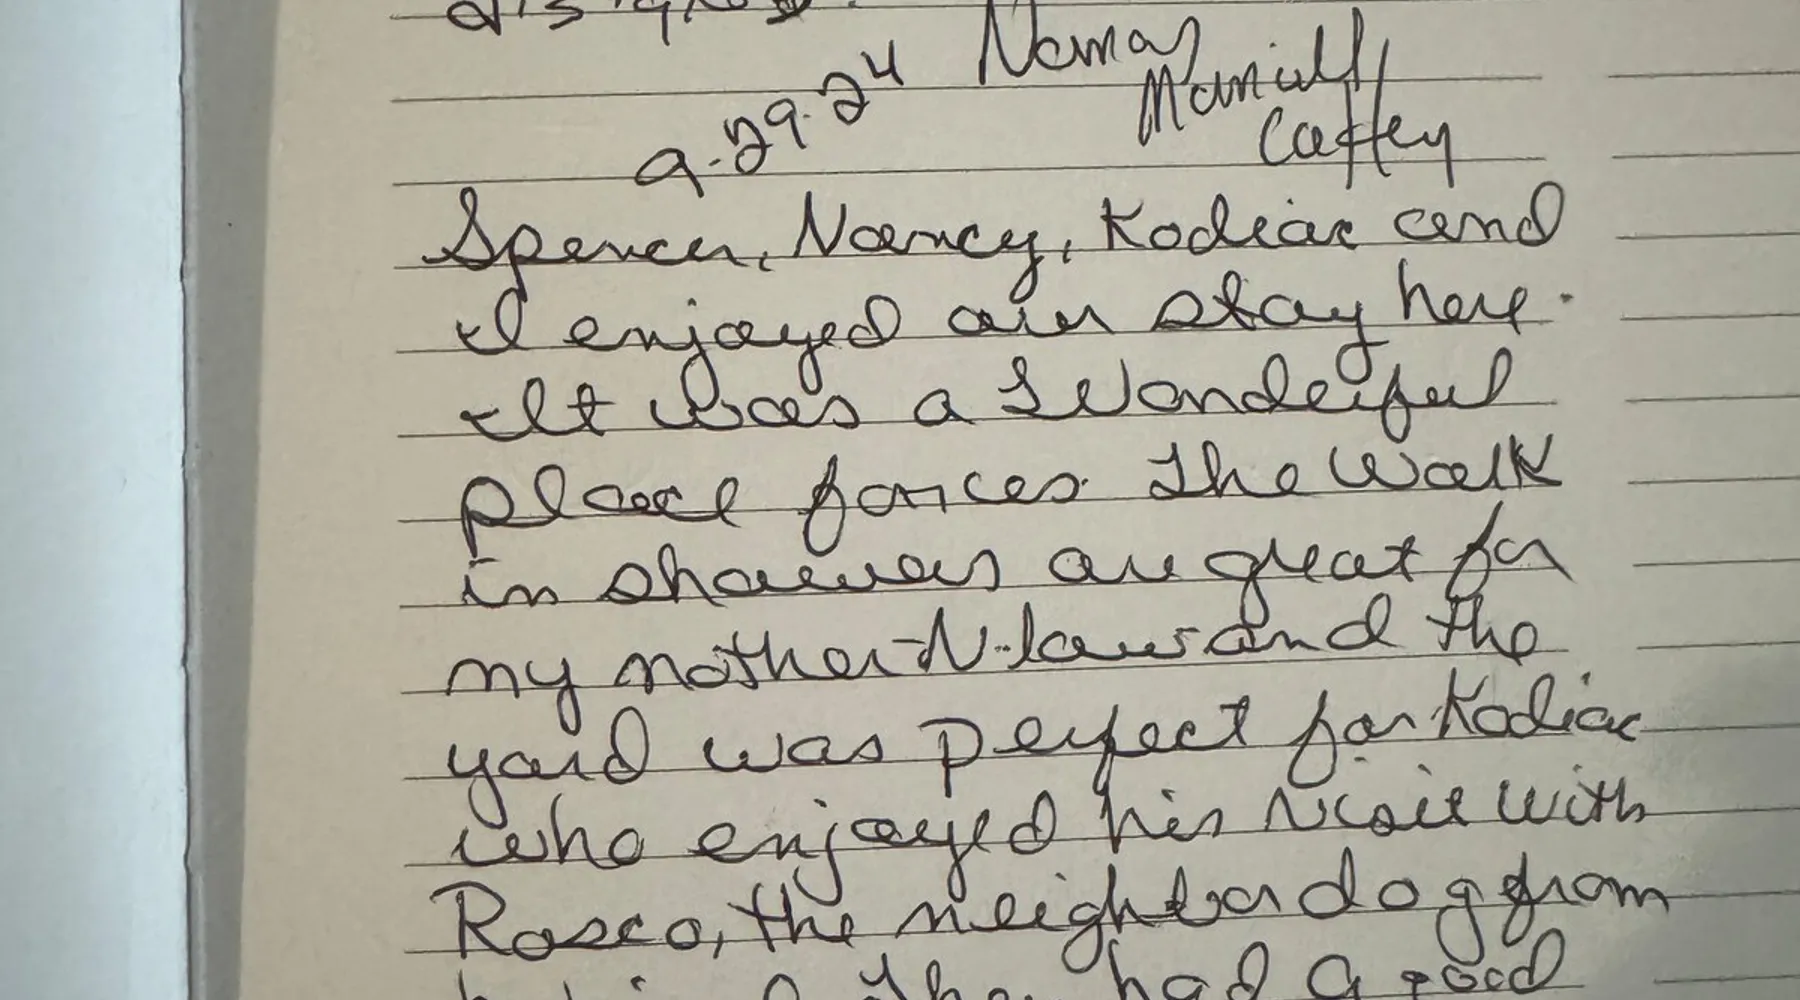 Nancy
9.29.24
Caffey
Spencer, Nancy, Kodiac and
I enjoyed our stay here.
It was a Wonderful
place for us. The Walk
in showers are great for
my mother-N-law and the
yard was perfect for Kodiac
who enjoyed his visit with
Rosco, the neighbor dog from
had a good